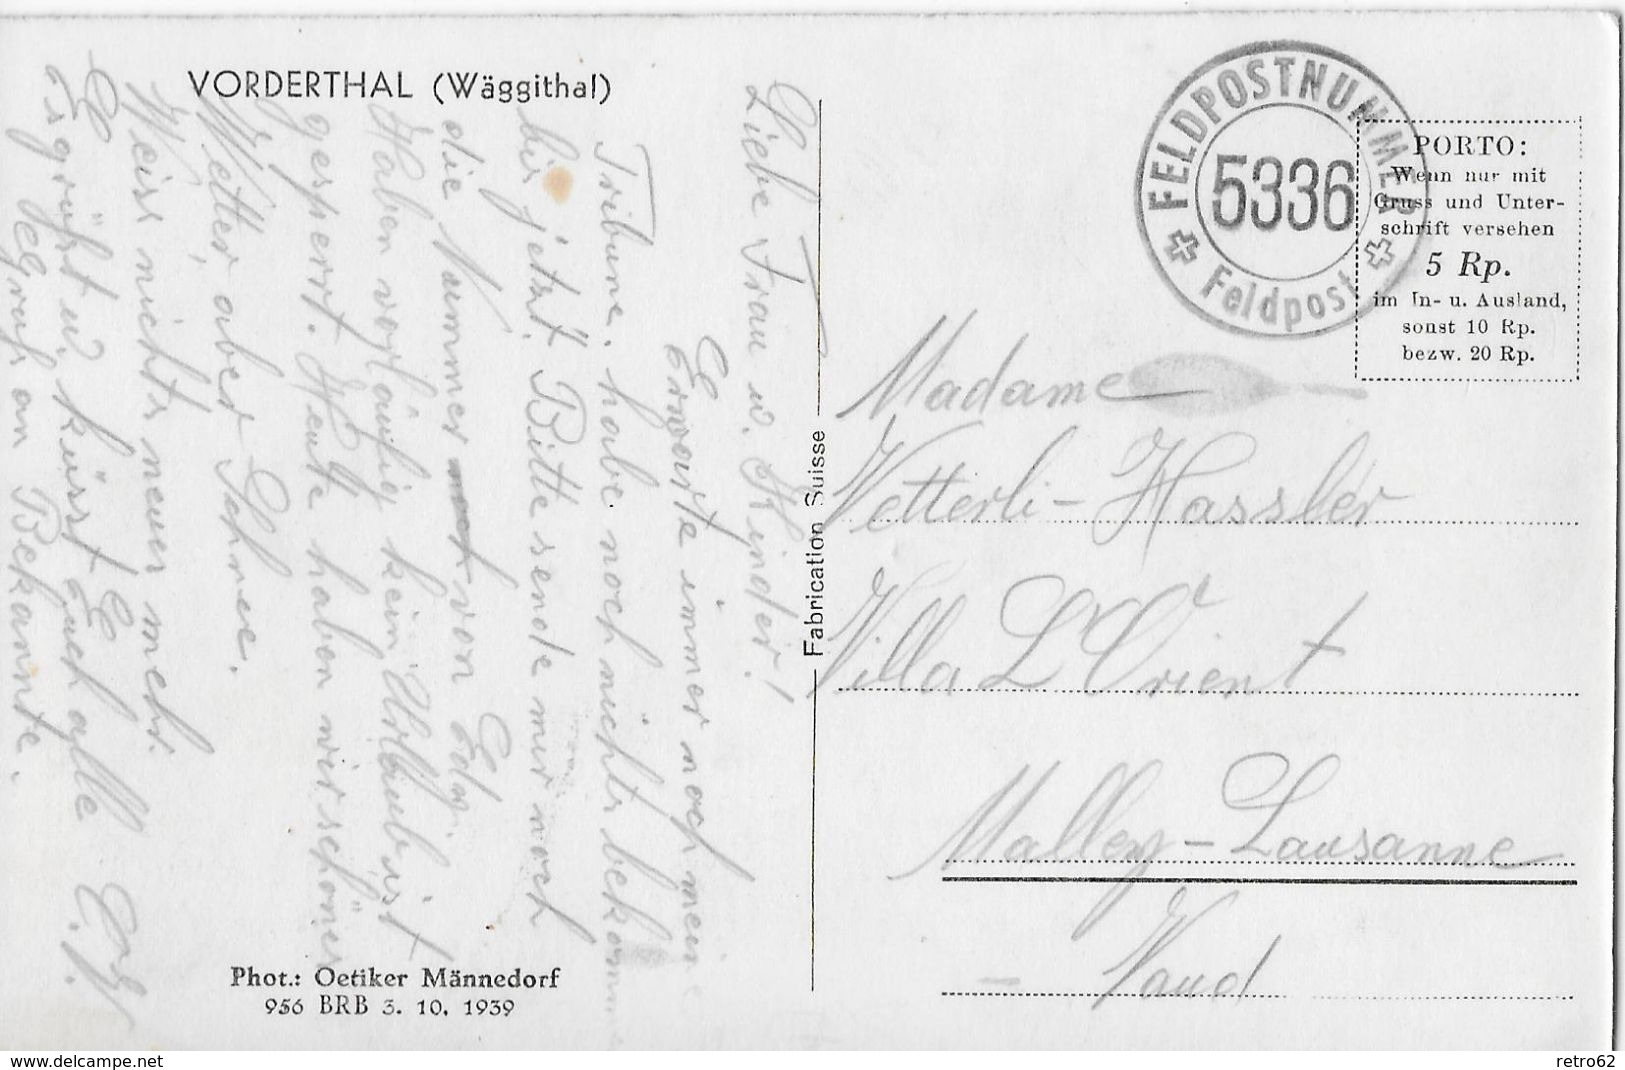 VORDERTHAL (Wäggithal)
Liebe Frau u. Kinder!
Erwarte immer noch meine
Tribune. habe noch nichts bekomm
bis jetzt. Bitte sende mir noch
die Nummer von Edg.
Haben vorläufig kein Urlaub ist
gesperrt. Heute haben wir schönes
Wetter, aber Schnee.
Weiss nichts neues mehr.
Es grüsst u. küsst Euch alle
Gruss an Bekannte.
Phot.: Oetiker Männedorf
956 BRB 3. 10. 1939
Fabrication Suisse
FELDPOSTNUMMER
5336
Feldpost
PORTO:
Wenn nur mit
Gruss und Unter-
schrift versehen
5 Rp.
im In- u. Ausland,
sonst 10 Rp.
bezw. 20 Rp.
Madame
Vetterli-Hassler
Villa L'Orient
Malley-Lausanne
- Vaud
www.delcampe.net
retro62